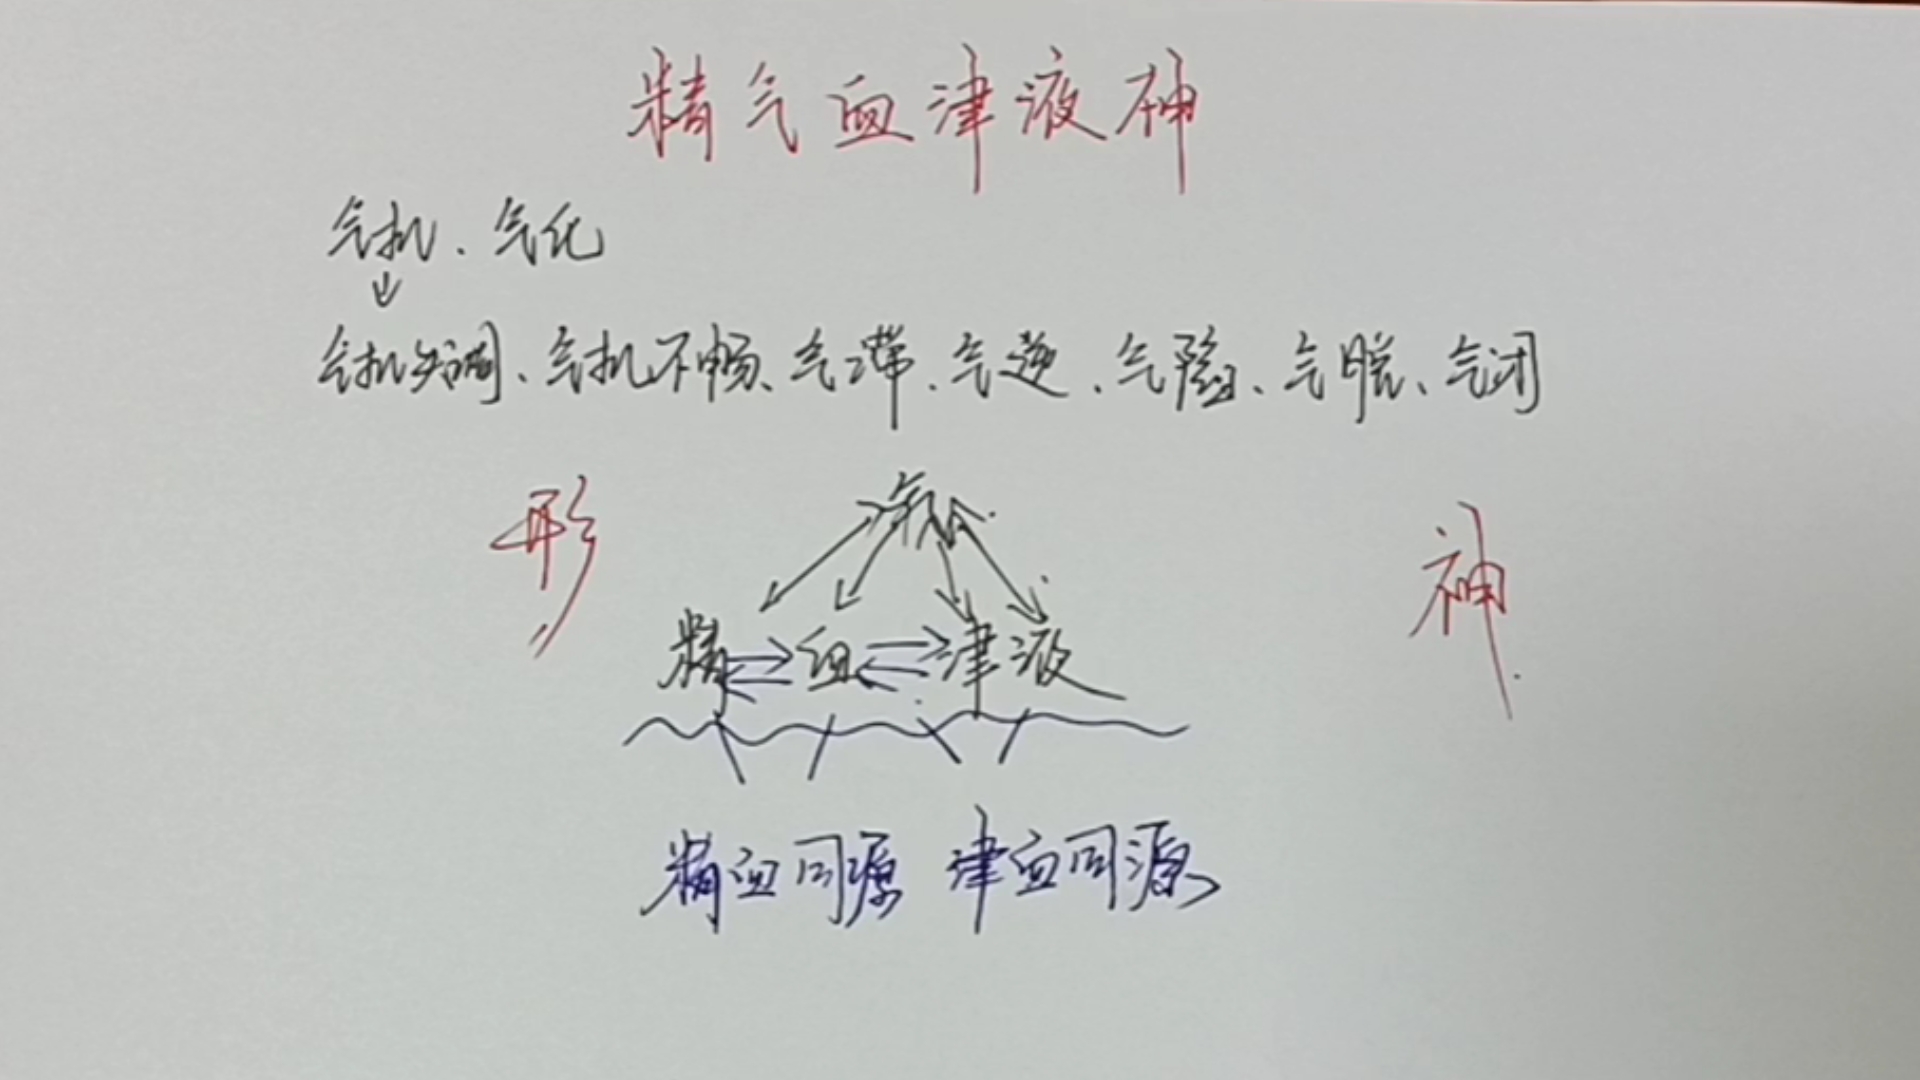 精气血津液神
气机、气化
气机失调、气机不畅、气滞、气逆、气陷、气脱、气闭
形
气
神
精 血 津液
精血同源 津血同源